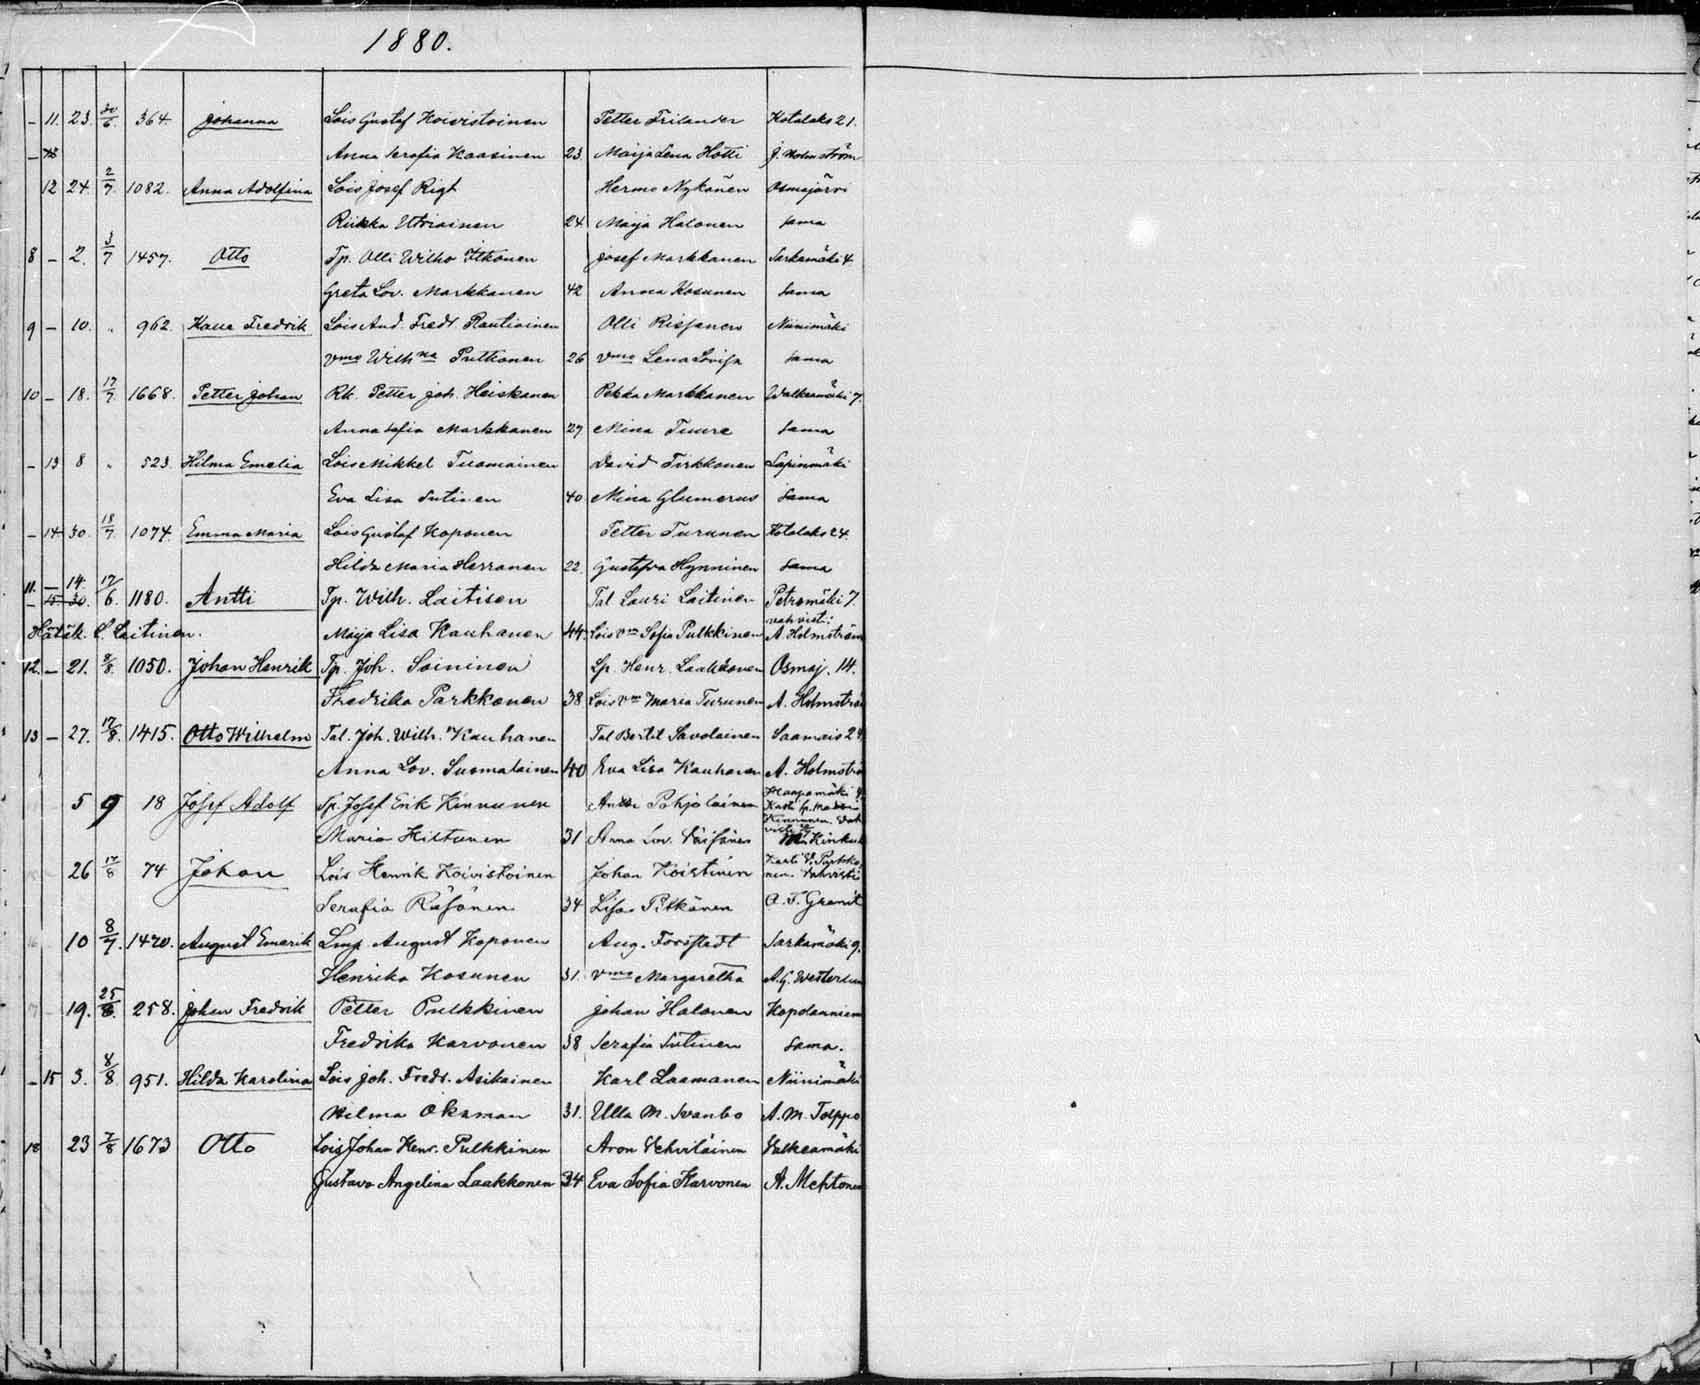 1880.
- 11. 23. 30/6. 364. Johanna Lois Gustaf Koivistoinen Petter Frilander Kotalaks 21.
- Anna Serafia Kaasinen 23. Maija Lena Hotti J. Holmström
12 24. 2/7. 1082. Anna Adolfina Lois Josef Rigt Herme Nykänen Osmajärvi
Riikka Utriainen 24 Maija Halonen Sama
8 - 2. 3/7 1457. Otto Tp. Olli Wilho Itkonen Josef Markkanen Sarkamäki 4.
Greta Lov. Markkanen 42 Anna Kosunen Sama
9 - 10. " 962. Kalle Fredrik Lois And. Fredr. Rautiainen Olli Rissanen Niinimäki
Vmo Wilhna Putkonen 26 Vmo Lena Lovisa Sama
10 - 18. 17/7. 1668. Petter Johan Rk. Petter Joh. Heiskanen Pekka Markkanen Walkeamäki 7.
Anna Sofia Markkanen 27 Mina Tuure Sama
- 13 8 " 523. Hilma Emelia Lois Mikkel Tuomainen David Tirkkonen Lapinmäki
Eva Lisa Sutinen 40. Mina Glumerus Sama
- 14 30. 18/7. 1074. Emma Maria Lois Gustaf Koponen Petter Turunen Kotalaks 24.
Hilda Maria Herranen 22. Gustafva Hynninen Sama
11. - 14. 17/6. 1180. Antti Tp. Wilh. Laitisen Tal Lauri Laitinen Petromäki 7.
- 15 30.
Hätäk. L. Laitinen. Maija Lisa Kauhanen 44. Lois vm Sofia Pulkkinen vahvist: A. Holmström
12. - 21. 9/8. 1050. Johan Henrik Tp. Joh. Soininen Lp. Henr. Laakkonen Osmaj. 14.
Fredrika Parkkonen 38 Lois vm Maria Turunen A. Holmströ
13 - 27. 17/8. 1415. Otto Wilhelm Tal. Joh. Wilh. Kauhanen Tal Bertil Savolainen Saamais 24
Anna Lov. Suomalainen 40 Eva Lisa Kauhanen A. Holmströ
5 9 18 Josef Adolf Tp. Josef Erik Kinnunen Antti Pohjolainen Haapamäki
Maria Hiltunen 31 Anna Lov. Väisänen
26 17/8 74 Johan Lois Henrik Koivistoinen Johan Koistinen Kasti vahvisti
Serafia Räsänen 34 Lisa Pitkänen A. F. Granit
10 8/7. 1420. August Emerik Lmp. August Koponen Aug. Forsstedt Sarkamäki 9.
Henrika Kosunen 31. Vmo Margaretha A. G. Westerlun
19. 25/8. 258. Johan Fredrik Petter Pulkkinen Johan Halonen Kopolanniem
Fredrika Karvonen 38 Serafia Sutinen Sama.
- 15 3. 8/8 951. Hilda Karolina Lois Joh. Fredr. Asikainen Karl Laamanen Niinimäki
Wilma Oksman 31. Ulla M. Svanbo A. M. Tolppo
18 23 7/8 1673 Otto Lois Johan Henr. Pulkkinen Aron Vehviläinen Valkeamäki
Gustava Angelina Laakkonen 34 Eva Sofia Karvonen A. Mehtonen